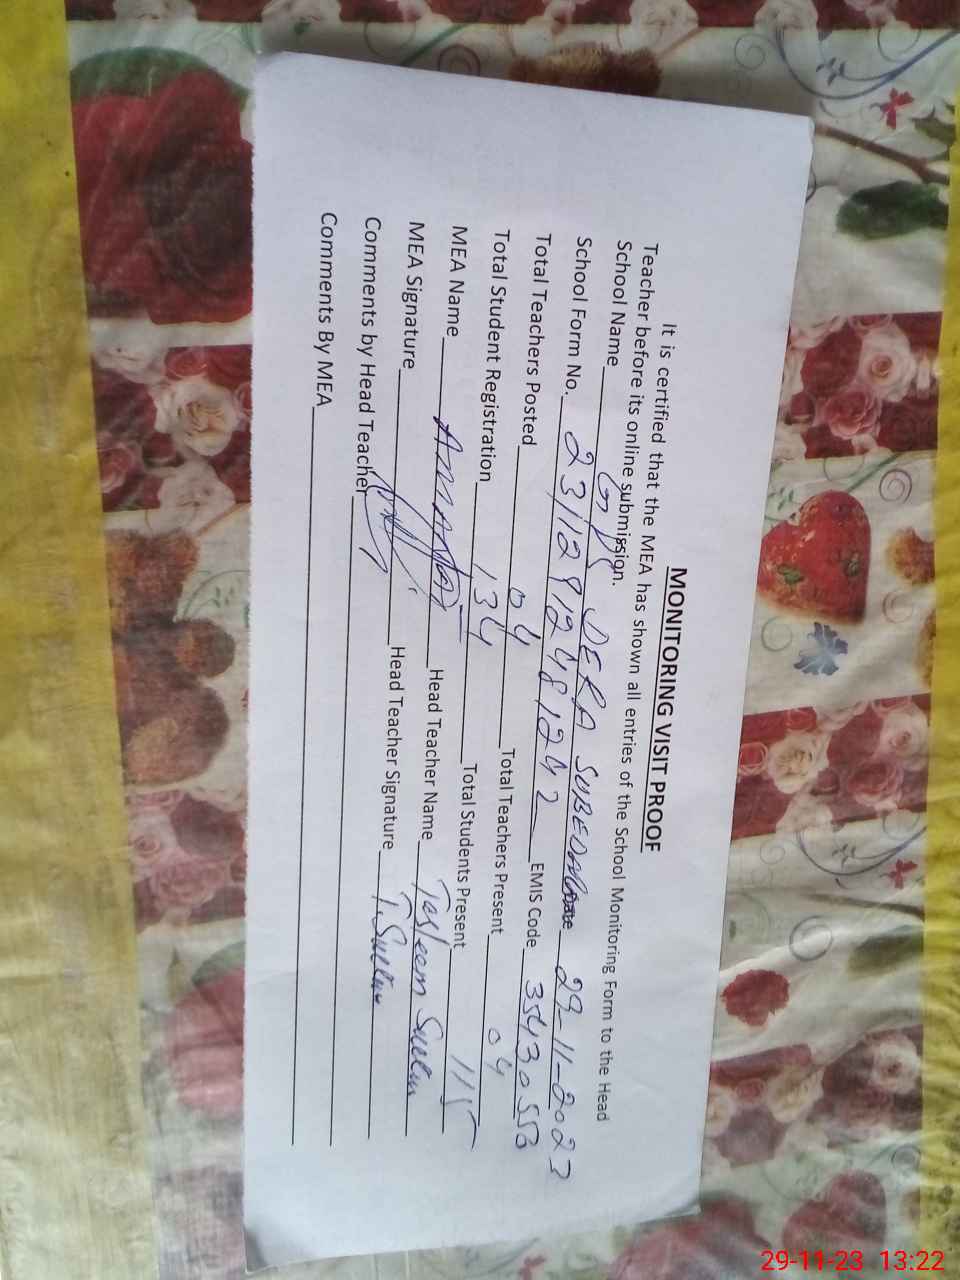 MONITORING VISIT PROOF
It is certified that the MEA has shown all entries of the School Monitoring Form to the Head
Teacher before its online submission.
School Name GPS DERA SUBEDAR 29-11-2023
School Form No. EMIS Code 35430550
Total Teachers Posted 04 Total Teachers Present 04
Total Student Registration 134 Total Students Present 115
MEA Name Head Teacher Name Tasleem
MEA Signature Head Teacher Signature
Comments by Head Teacher
Comments By MEA
29-11-23 13:22